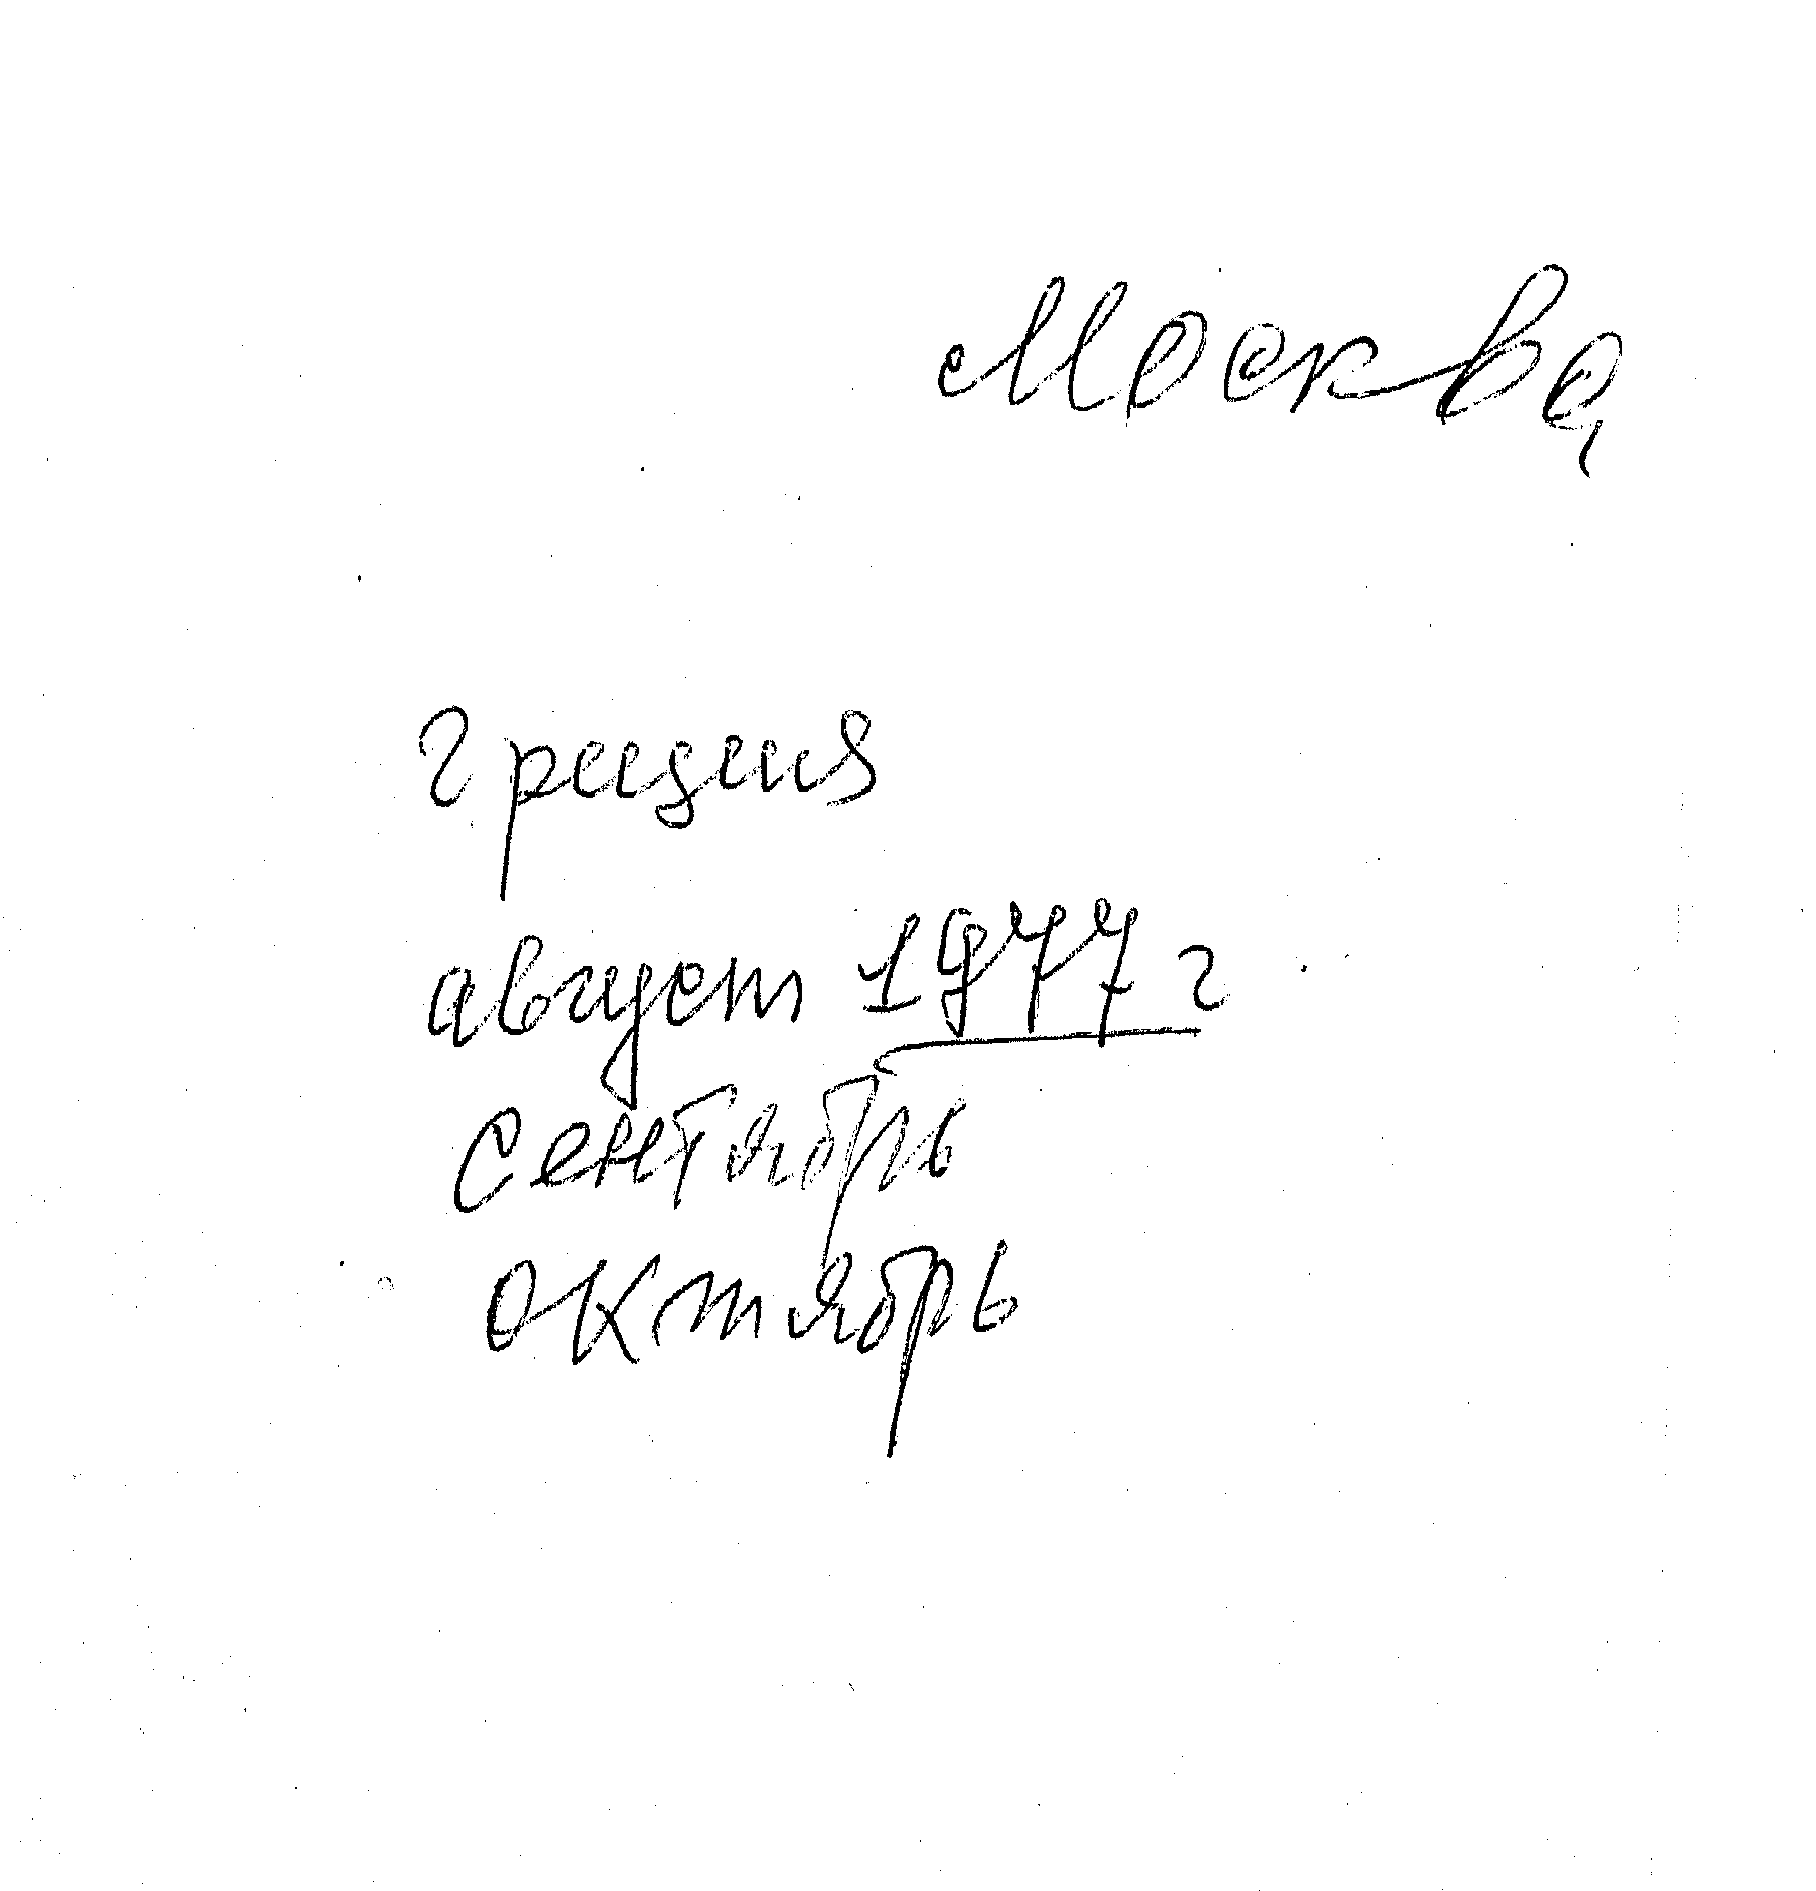 Москва,
Греция
август 1977 г
сентябрь
октябрь